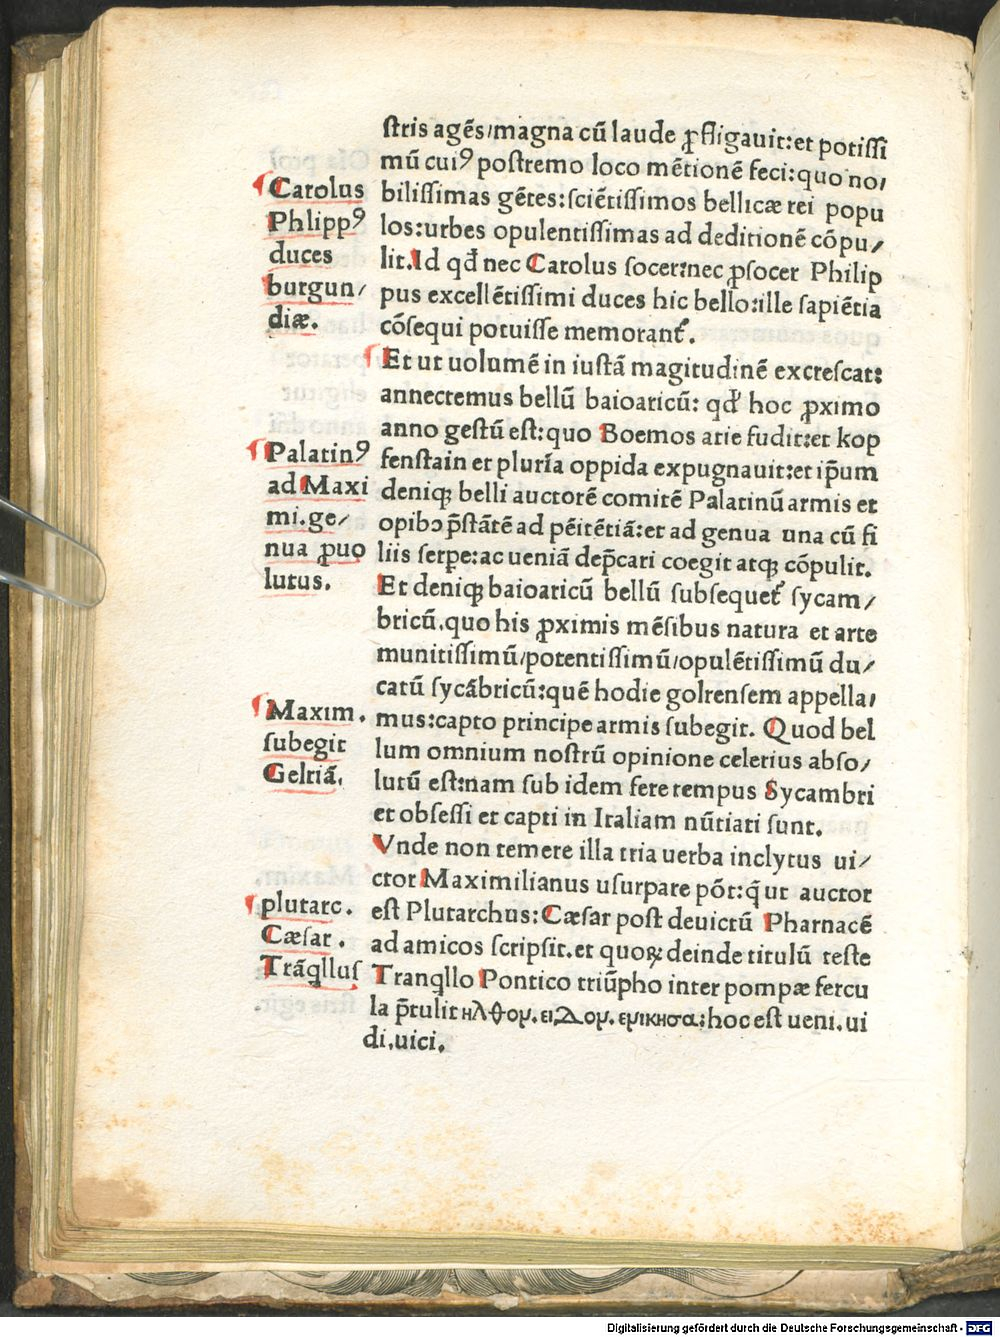 ſtris agēs/magna cū laude ꝓfligauit:et potiſſi
mū cuiꝰ poſtremo loco mētionē feci:quo no/
biliſſimas gētes:ſciētiſſimos bellicæ rei popu
los:urbes opulentiſſimas ad deditionē cōpu/
lit.Id qđ nec Carolus ſocer:nec ꝓſocer Philip
pus excellētiſſimi duces hic bello:ille ſapiētia
cōſequi potuiſſe memorant᷑.
Et ut uolumē in iuſtā magitudinē excreſcat:
annectemus bellū baioaricū: qđ hoc ꝓximo
anno geſtū eſt:quo Boemos arie fudit:et kop
fenſtain et plurīa oppida expugnauit:et ip̄um
deniqꝫ belli auctorē comitē Palatinū armis et
opibꝰ p̄ſtātē ad pēitētiā:et ad genua una cū fi
liis ſerpe:ac ueniā dep̄cari coegit atqꝫ cōpulit.
Et deniqꝫ baioaricū bellū ſubſequet᷑ ſycam/
bricū.quo his ꝓximis mēſibus natura et arte
munitiſſimū/potentiſſimū/opulētiſſimū du/
catū ſycābricū:quē hodie golrenſem appella/
mus:capto principe armis ſubegit. Quod bel
lum omnium noſtrū opinione celerius abſo/
lutū eſt:nam ſub idem fere tempus Sycambri
et obſeſſi et capti in Italiam nūtiati ſunt.
Vnde non temere illa tria uerba inclytus ui/
ctor Maximilianus uſurpare pōt:q̄ ut auctor
eſt Plutarchus:Cæſar poſt deuictū Pharnacē
ad amicos ſcripſit.et quoꝝ deinde titulū teſte
Tranqͥllo Pontico triūpho inter pompæ fercu
la p̄tulit ηλθον.ειΔον.ενικησα:hoc eſt ueni.ui
di.uici.
Carolus
Phlippꝰ
duces
burgun/
diæ.
Palatinꝰ
ad Maxi
mi.ge/
nua ꝓuo
lutus.
Maxim.
ſubegit
Gelriā.
plutarc.
Cæſar.
Trāqͥllus
Digitalisierung gefördert durch die Deutsche Forschungsgemeinschaft - DFG